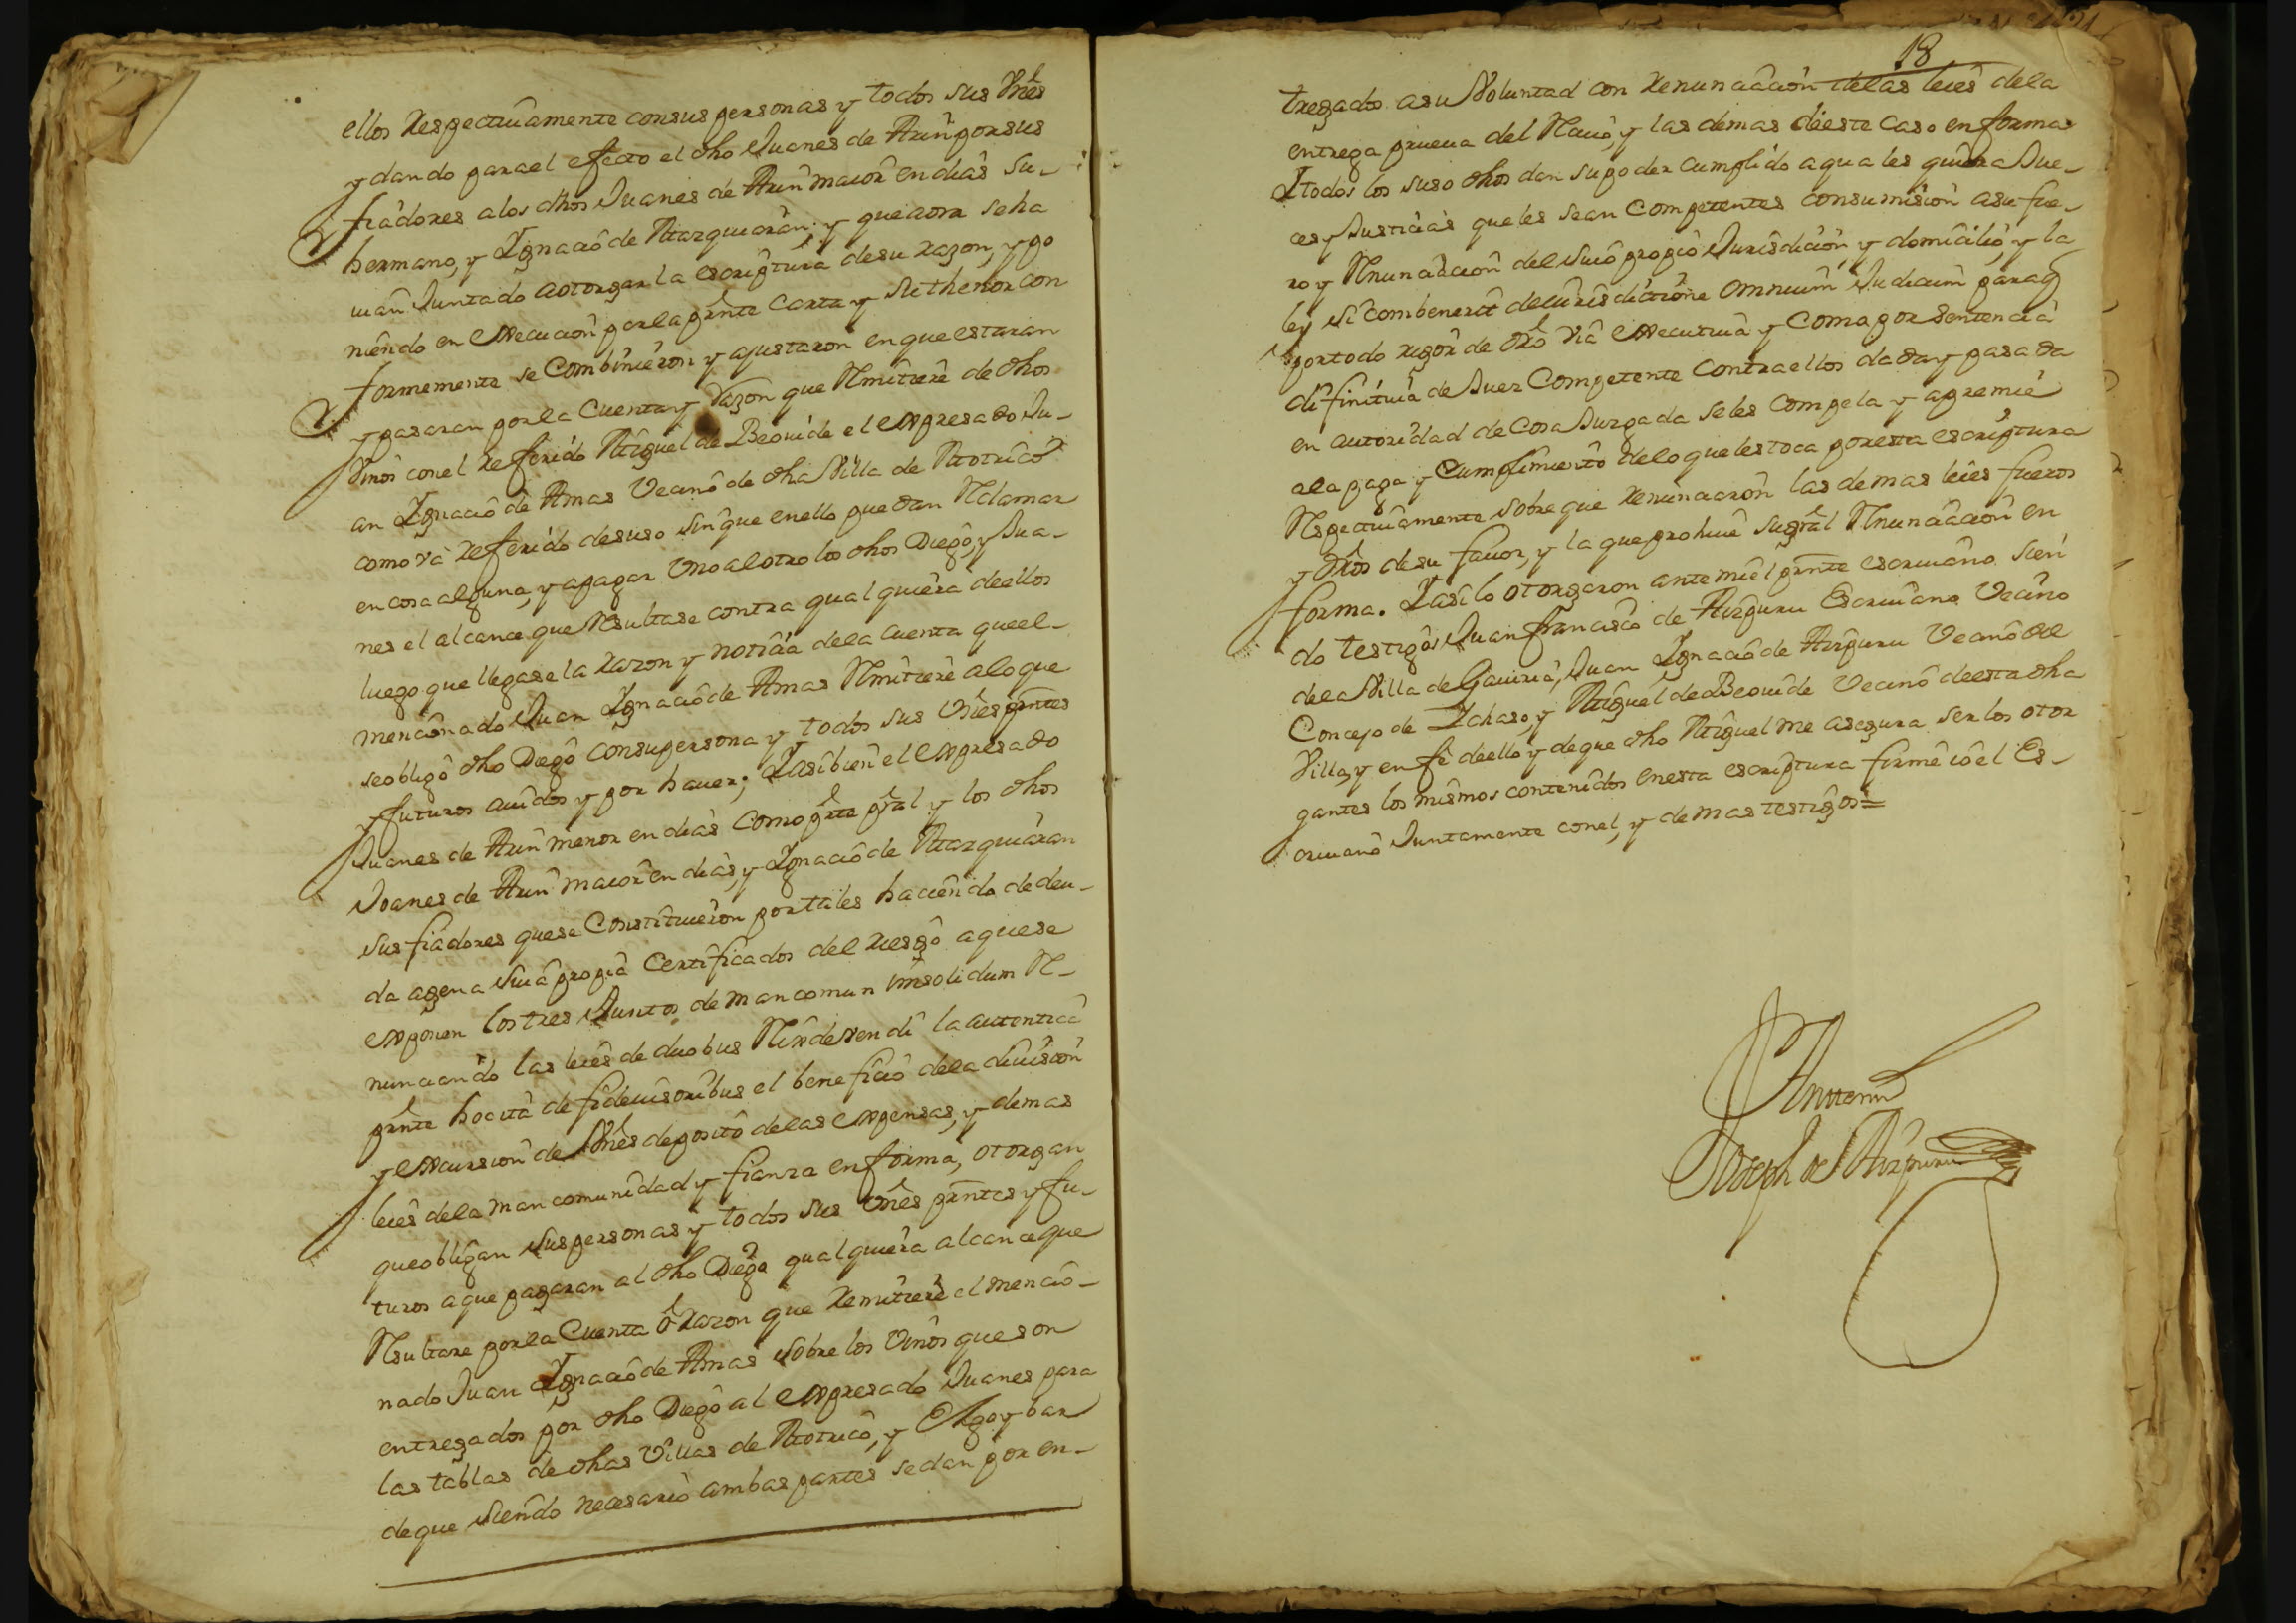 ellos Respectiuamente consus personas y todos sus Vnês
y dando parael efecto el dho Juanes de Arin porsus
fiadores alos dhos Juanes de Arin maior en dias su-
hermano, y Ignacio de Marquiaran; y que aora seha
uian Juntado aotorgar la escriptura desu razon, y po
niendo en execucion porla prñte Carta y su thenor con
formemente se Combinieron y ajustaron en que estaran
y pasaran por la Cuenta y Razon que Remitiere de dhos
Vinos conel Referido Miguel de Beouide el expresado Ju-
an Ignacio de Amas Vecino de dha Villa de Motrico
como va Referido desuso sin que enello puedan Reclamar
en cosa alguna, y apagar Vno alotro los dhos Diego, y Jua-
nes el alcance que Resultase contra qualquiera deellos
luego que llegase la Razon y noticia dela Cuenta queel-
mencionado Juan Ignacio de Amas Remitiere alo que
seobligò dho Diego consupersona y todos sus Vnês prñtes
y futuros auidos y por hauer; Iasibien el expresado
Juanes de Arin menor en dias como prte prãl y los dhos
Joanes de Arin maior en dias, y Ignacio de Marquiaran
sus fiadores quese Constituieron portales haciendo dedeu-
da agena suia propia Certificados del riesgo aquese
exponen los tres Juntos demancomun insolidum Re-
nunciando las leies de duobus Rex de vendi la autentica
prñte hocita de fideiusoribus el beneficio dela diuision
y excursion de Vnês deposito delas expensas, y demas
leies dela mancomunidad y fianza en forma, otorgan
queobligan sus personas y todos sus Vnês prñtes y fu-
turos aque pagaran al dho Diego qualquiera alcance que
Resultare porla Cuenta ô Razon que Remitiere el mencio-
nado Juan Ignacio de Amas sobre los Vinos que son
entregados por dho Diego al expresado Juanes para
las tablas de dhas Villas de Motrico, y Elgoybar
deque siendo necesario ambas partes sedan por en-
18
tregados asu Voluntad con Renunciacion delas leies dela
entrega prueua del Reciuo, y las demas deeste Caso en forma
I todos los suso dhos dan supoder cumplido aquales quiera Jue-
ces y Justicias queles sean Competentes consumision asu fue-
ro y Renunciacion del suio propio Jurisdicion, y domicilio, y la
ley si combenerit deiurisdictione omnium Judicum paraq
portodo rigor de dro via executiua y Como por sentencia
difinitiua de Juez Competente Contraellos dada y pasada
en autoridad de Cosa Juzgada seles compela y apremie
ala paga y Cumplimiento delo queles toca poresta escriptura
Respectiuamente sobre que Renunciaron las demas leies fueros
y drôs desu fauor, y la queprohiue sugrãl Renunciacion en
forma. Iasilo otorgaron ante miel prñte escriuano sien
do testigos Juan francisco de Aizpuru Escriuano Vecino
dela Villa de Gauiria, Juan Ignacio de Aizpuru Vecino del
Concejo de Ichaso, y Miguel de Beouide Vecino deesta dha
Villa, y en fè deello y deque dho Miguel me asegura ser los otor
gantes los mismos contenidos enesta escriptura firmè io el Es-
criuano Juntamente conel, y demas testigos=
Antemi
Joseph de Aizpuru